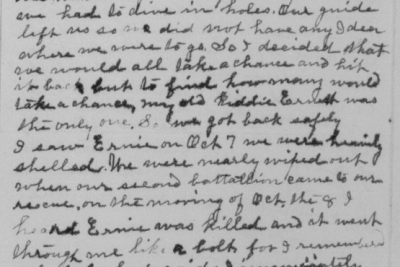 we had to dive in holes. Our guide
left us so we did not have any Idea
where we were to go. So I decided that
we would all take a chance and hit
it back but to find how many would
take a chance, my old Kiddie Ernest was
the only one. So we got back safely
I saw Ernie on Oct 7 we were heavily
shelled. We were nearly wiped out
when our second battallion came to our
rescue. on the moving of Oct the 8 I
heard Ernie was killed and it went
through me like a bolt for I remembered